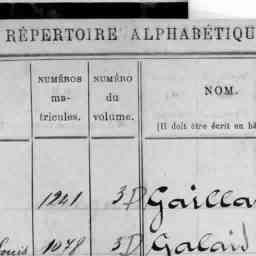 RÉPERTOIRE ALPHABÉTIQU
NUMÉROS
ma-
tricules.
NUMÉRO
du
volume.
NOM.
(Il doit être écrit en bâ
1241 3D Gailla
Louis 1078 3D Galaid